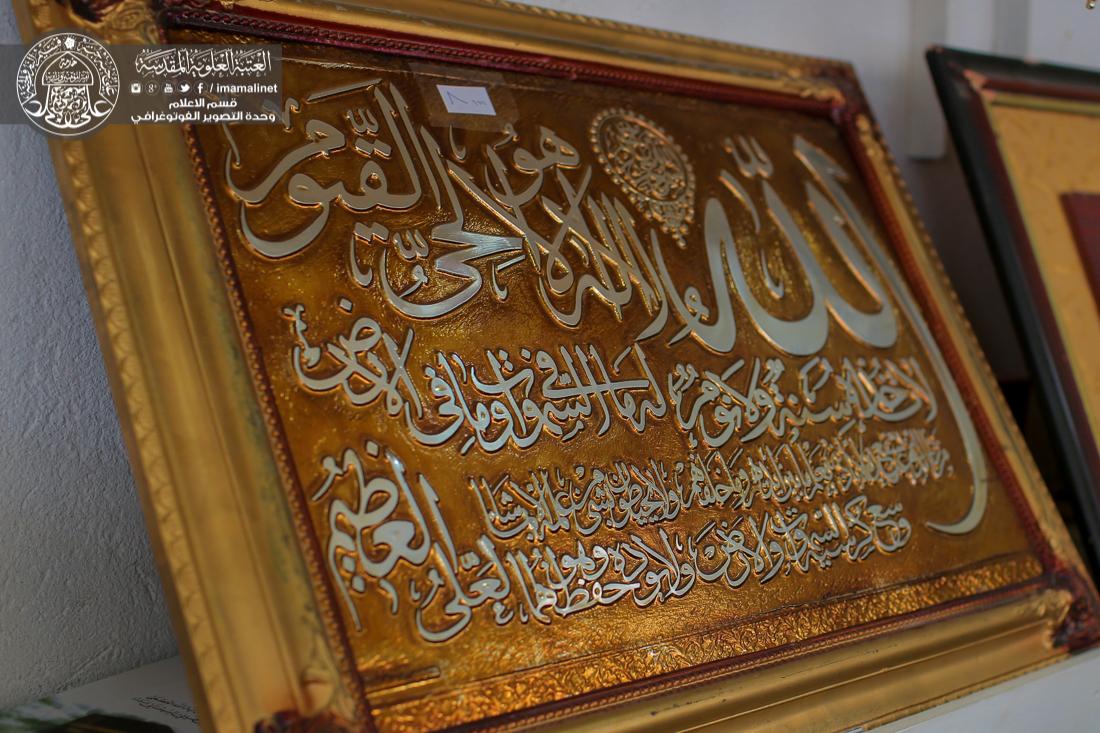 العتبة العلوية المقدسة
/ imamalinet
قسم الاعلام
وحدة التصوير الفوتوغرافي
الله لا إله إلا هو الحي القيوم
لا تأخذه سنة ولا نوم له ما في السموات وما في الارض
من ذا الذي يشفع عنده الا باذنه يعلم ما بين ايديهم وما خلفهم ولا يحيطون بشيء من علمه الا بما شاء
وسع كرسيه السموات والارض ولا يؤده حفظهما وهو العلي العظيم